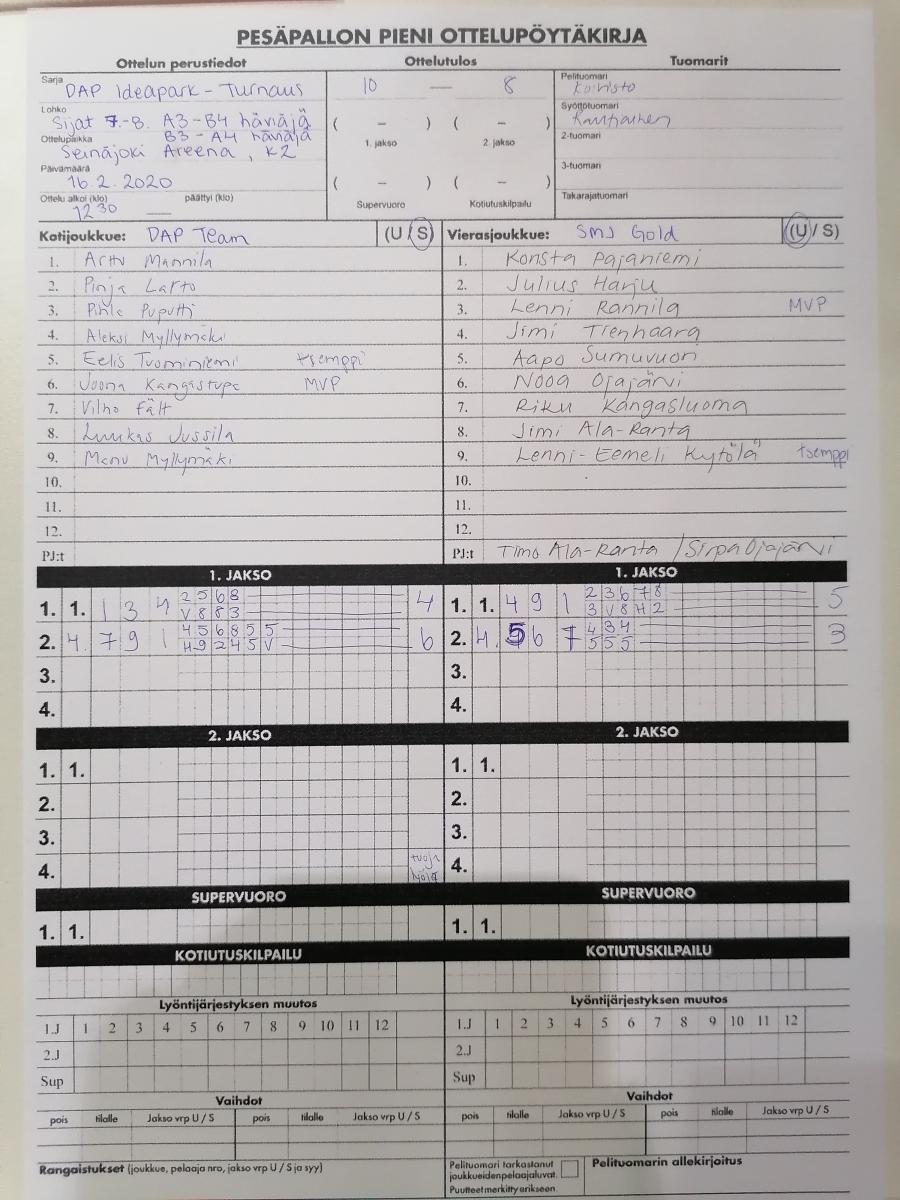 PESÄPALLON PIENI OTTELUPÖYTÄKIRJA
Ottelun perustiedot Ottelutulos Tuomarit
Sarja DAP Ideapark - Turnaus 10 — 8 Pelituomari Koivisto
Lohko Sijat 7.-8. A3-B4 häviäjä ( - ) ( - ) Syöttötuomari
B3-A4 häviäjä 1. jakso 2. jakso 2-tuomari
Ottelupaikka Seinäjoki Areena, K2
3-tuomari
Päivämäärä 16.2.2020 ( - ) ( - )
Ottelu alkoi (klo) 12 30 — päättyi (klo) Supervuoro Kotiutuskilpailu Takarajatuomari
Kotijoukkue: DAP Team (U / S) Vierasjoukkue: SMJ Gold (U / S)
1. Arttu Mannila 1. Konsta Pajaniemi
2. Pinja Latto 2. Julius Harju
3. Pihla Puputti 3. Lenni Rannila MVP
4. Aleksi Myllymäki 4. Jimi Tienhaara
5. Eelis Tuominiemi tsemppi 5. Aapo Sumuvuori
6. Joona Kangastupa MVP 6. Nooa Ojajärvi
7. Vilho Fält 7. Riku Kangasluoma
8. Luukas Jussila 8. Jimi Ala-Ranta
9. Manu Myllymäki 9. Lenni-Eemeli Kytölä tsemppi
10. 10.
11. 11.
12. 12.
PJ:t PJ:t Timo Ala-Ranta / Sirpa Ojajärvi
1. JAKSO 1. JAKSO
1. 1. 1 3 4 2 5 6 8 4 1. 1. 4 9 1 2 3 6 7 8 5
V 8 8 3 3 V 8 H 2
2. 4. 7 9 1 4 5 6 8 5 5 6 2. 4. 5 6 7 4 3 4 3
H 9 2 4 5 V 5 5 5
3. 3.
4. 4.
2. JAKSO 2. JAKSO
1. 1. 1. 1.
2. 2.
3. 3.
4. tuoja 4.
lyöjä
SUPERVUORO SUPERVUORO
1. 1. 1. 1.
KOTIUTUSKILPAILU KOTIUTUSKILPAILU
Lyöntijärjestyksen muutos Lyöntijärjestyksen muutos
1.J 1 2 3 4 5 6 7 8 9 10 11 12 1.J 1 2 3 4 5 6 7 8 9 10 11 12
2.J 2.J
Sup Sup
Vaihdot Vaihdot
pois tilalle Jakso vrp U / S pois tilalle Jakso vrp U / S pois tilalle Jakso vrp U / S pois tilalle Jakso vrp U / S
Rangaistukset (joukkue, pelaaja nro, jakso vrp U / S ja syy) Pelituomari tarkastanut Pelituomarin allekirjoitus
joukkueidenpelaajaluvat.
Puutteet merkitty erikseen.